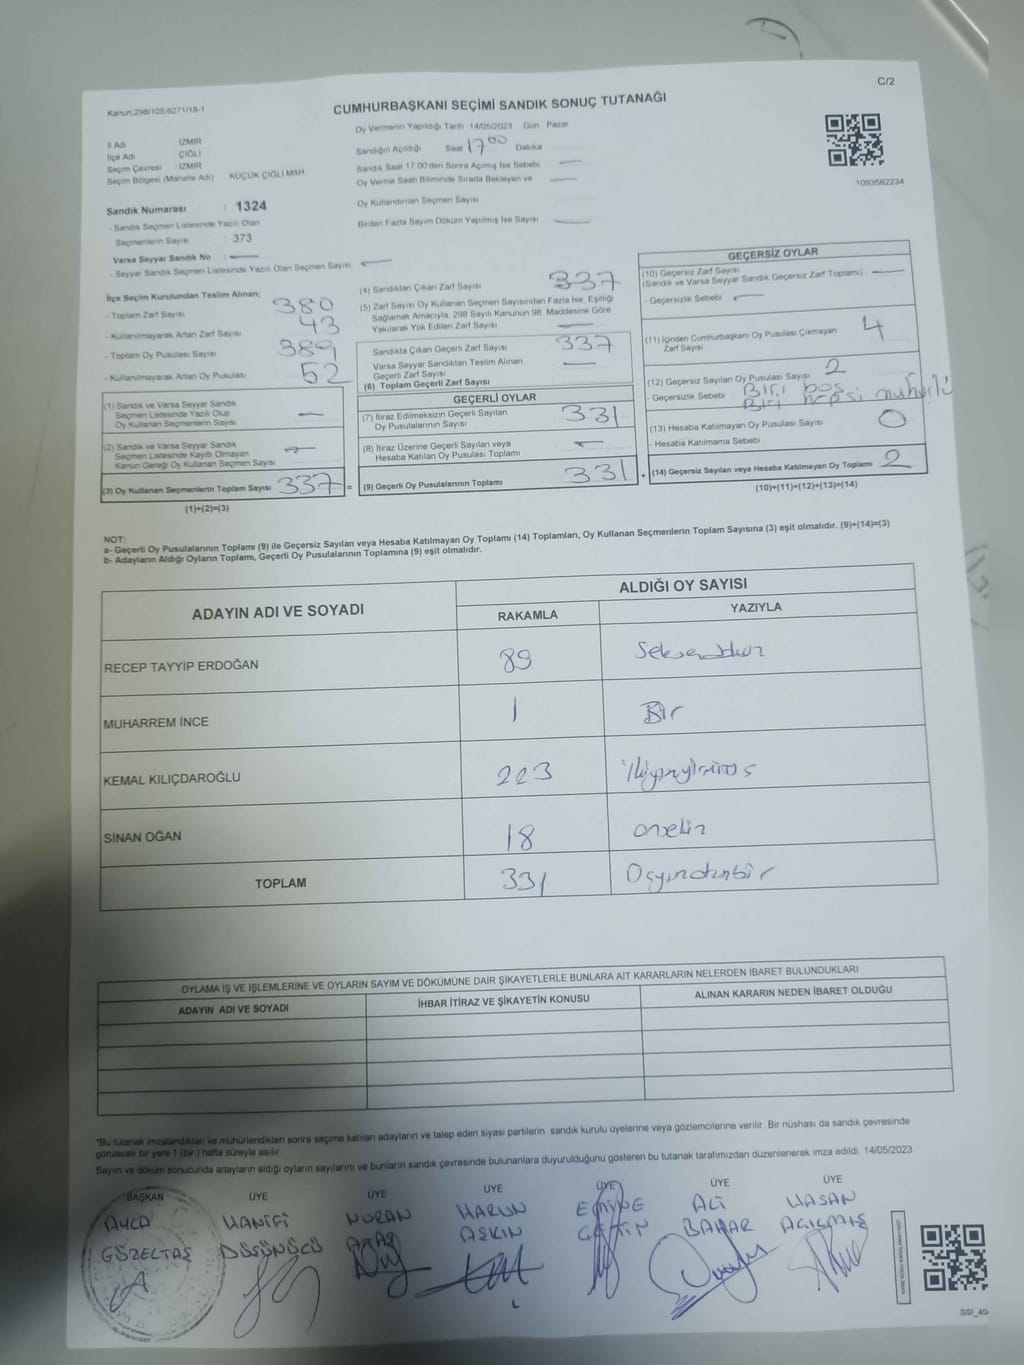 Kanun:298/105;6271/18-1
CUMHURBAŞKANI SEÇİMİ SANDIK SONUÇ TUTANAĞI
C/2
İl Adı : İZMİR
İlçe Adı : ÇİĞLİ
Seçim Çevresi : İZMİR
Seçim Bölgesi (Mahalle Adı) : KÜÇÜK ÇİĞLİ MAH.
Sandık Numarası : 1324
- Sandık Seçmen Listesinde Yazılı Olan
Seçmenlerin Sayısı : 373
Varsa Seyyar Sandık No : —
- Seyyar Sandık Seçmen Listesinde Yazılı Olan Seçmen Sayısı —
Oy Vermenin Yapıldığı Tarih 14/05/2023 Gün Pazar
Sandığın Açıldığı Saat 17 00 Dakika
Sandık Saat 17:00'den Sonra Açılmış İse Sebebi —
Oy Verme Saati Bitiminde Sırada Bekleyen ve —
Oy Kullandırılan Seçmen Sayısı
Birden Fazla Sayım Döküm Yapılmış İse Sayısı —
1093582234
İlçe Seçim Kurulundan Teslim Alınan;
- Toplam Zarf Sayısı 380
- Kullanılmayarak Artan Zarf Sayısı 43
- Toplam Oy Pusulası Sayısı 389
- Kullanılmayarak Artan Oy Pusulası 52
(1) Sandık ve Varsa Seyyar Sandık
Seçmen Listesinde Yazılı Olup
Oy Kullanan Seçmenlerin Sayısı —
(2) Sandık ve Varsa Seyyar Sandık
Seçmen Listesinde Kayıtlı Olmayan
Kanun Gereği Oy Kullanan Seçmen Sayısı —
(3) Oy Kullanan Seçmenlerin Toplam Sayısı 337 =
(1)+(2)=(3)
(4) Sandıktan Çıkan Zarf Sayısı 337
(5) Zarf Sayısı Oy Kullanan Seçmen Sayısından Fazla İse, Eşitliği
Sağlamak Amacıyla, 298 Sayılı Kanunun 98. Maddesine Göre
Yakılarak Yok Edilen Zarf Sayısı —
Sandıkta Çıkan Geçerli Zarf Sayısı 337
Varsa Seyyar Sandıktan Teslim Alınan
Geçerli Zarf Sayısı —
(6) Toplam Geçerli Zarf Sayısı
GEÇERLİ OYLAR
(7) İtiraz Edilmeksizin Geçerli Sayılan
Oy Pusulasının Sayısı 331
(8) İtiraz Üzerine Geçerli Sayılan veya
Hesaba Katılan Oy Pusulası Toplamı —
(9) Geçerli Oy Pusulalarının Toplamı 331 +
GEÇERSİZ OYLAR
(10) Geçersiz Zarf Sayısı
(Sandık ve Varsa Seyyar Sandık Geçersiz Zarf Toplamı) —
- Geçersizlik Sebebi —
(11) İçinden Cumhurbaşkanı Oy Pusulası Çıkmayan
Zarf Sayısı 4
(12) Geçersiz Sayılan Oy Pusulası Sayısı 2
- Geçersizlik Sebebi Biri boş
Biri hepsi mühürlü
(13) Hesaba Katılmayan Oy Pusulası Sayısı 0
- Hesaba Katılmama Sebebi
(14) Geçersiz Sayılan veya Hesaba Katılmayan Oy Toplamı 2
(10)+(11)+(12)+(13)=(14)
NOT:
a- Geçerli Oy Pusulalarının Toplamı (9) ile Geçersiz Sayılan veya Hesaba Katılmayan Oy Toplamı (14) Toplamları, Oy Kullanan Seçmenlerin Toplam Sayısına (3) eşit olmalıdır. (9)+(14)=(3)
b- Adayların Aldığı Oyların Toplamı, Geçerli Oy Pusulalarının Toplamına (9) eşit olmalıdır.
ADAYIN ADI VE SOYADI
ALDIĞI OY SAYISI
RAKAMLA YAZIYLA
RECEP TAYYİP ERDOĞAN 89 Seksendokuz
MUHARREM İNCE 1 Bir
KEMAL KILIÇDAROĞLU 223 ikiyüzyirmiüç
SİNAN OĞAN 18 onsekiz
TOPLAM 331 Üçyüzotuzbir
OYLAMA İŞ VE İŞLEMLERİNE VE OYLARIN SAYIM VE DÖKÜMÜNE DAİR ŞİKAYETLERLE BUNLARA AİT KARARLARIN NELERDEN İBARET BULUNDUKLARI
ADAYIN ADI VE SOYADI İHBAR İTİRAZ VE ŞİKAYETİN KONUSU ALINAN KARARIN NEDEN İBARET OLDUĞU
*Bu tutanak imzalandıktan ve mühürlendikten sonra seçime katılan adayların ve talep eden siyasi partilerin sandık kurulu üyelerine veya gözlemcilerine verilir. Bir nüshası da sandık çevresinde
görülecek bir yere 1 (bir ) hafta süreyle asılır.
Sayım ve döküm sonucunda adayların aldığı oyların sayılarını ve bunların sandık çevresinde bulunanlara duyurulduğunu gösteren bu tutanak tarafımızdan düzenlenerek imza edildi. 14/05/2023
BAŞKAN ÜYE ÜYE ÜYE ÜYE ÜYE ÜYE
AYCA HANİFİ NURAN HARUN EMİNE ALİ HASAN
GÖZELTAŞ DÜŞÜNÜCÜ ATAŞ AŞKIN ÇETİN BAHAR AÇILMIŞ